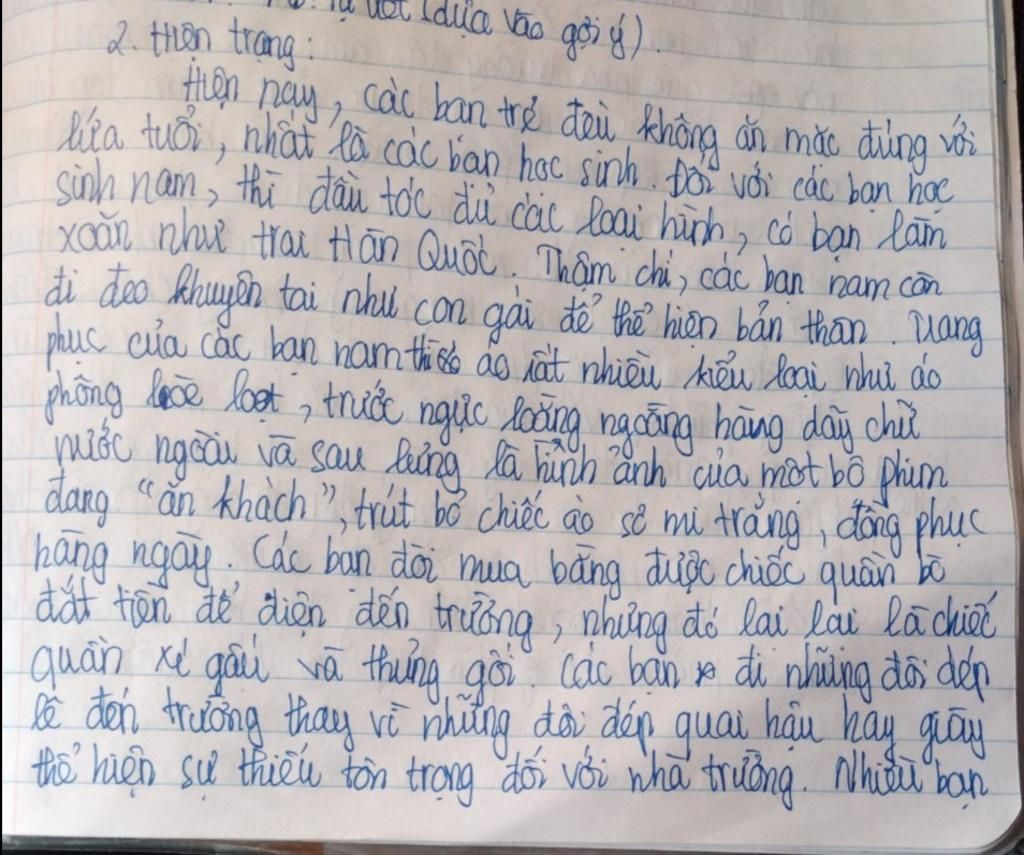 (dựa vào gợi ý)
2. Hiện trạng:
Hiện nay, các bạn trẻ đều không ăn mặc đúng với
lứa tuổi, nhất là các bạn học sinh. Đối với các bạn học
sinh nam, thì đầu tóc đủ các loại hình, có bạn làm
xoăn như trai Hàn Quốc. Thậm chí, các bạn nam còn
đi đeo khuyên tai như con gái để thể hiện bản thân. Trang
phục của các bạn nam thì có áo rất nhiều kiểu loại như áo
phông loè loẹt, trước ngực loằng ngoằng hàng dãy chữ
nước ngoài và sau lưng là hình ảnh của một bộ phim
đang "ăn khách", trút bỏ chiếc áo sơ mi trắng, đồng phục
hằng ngày. Các bạn đòi mua bằng được chiếc quần bò
đắt tiền để diện đến trường, nhưng đó lại lại là chiếc
quần xé gấu và thủng gối. Các bạn đi những đôi dép
lê đến trường thay vì những đôi dép quai hậu hay giày
thể hiện sự thiếu tôn trọng đối với nhà trường. Nhiều bạn